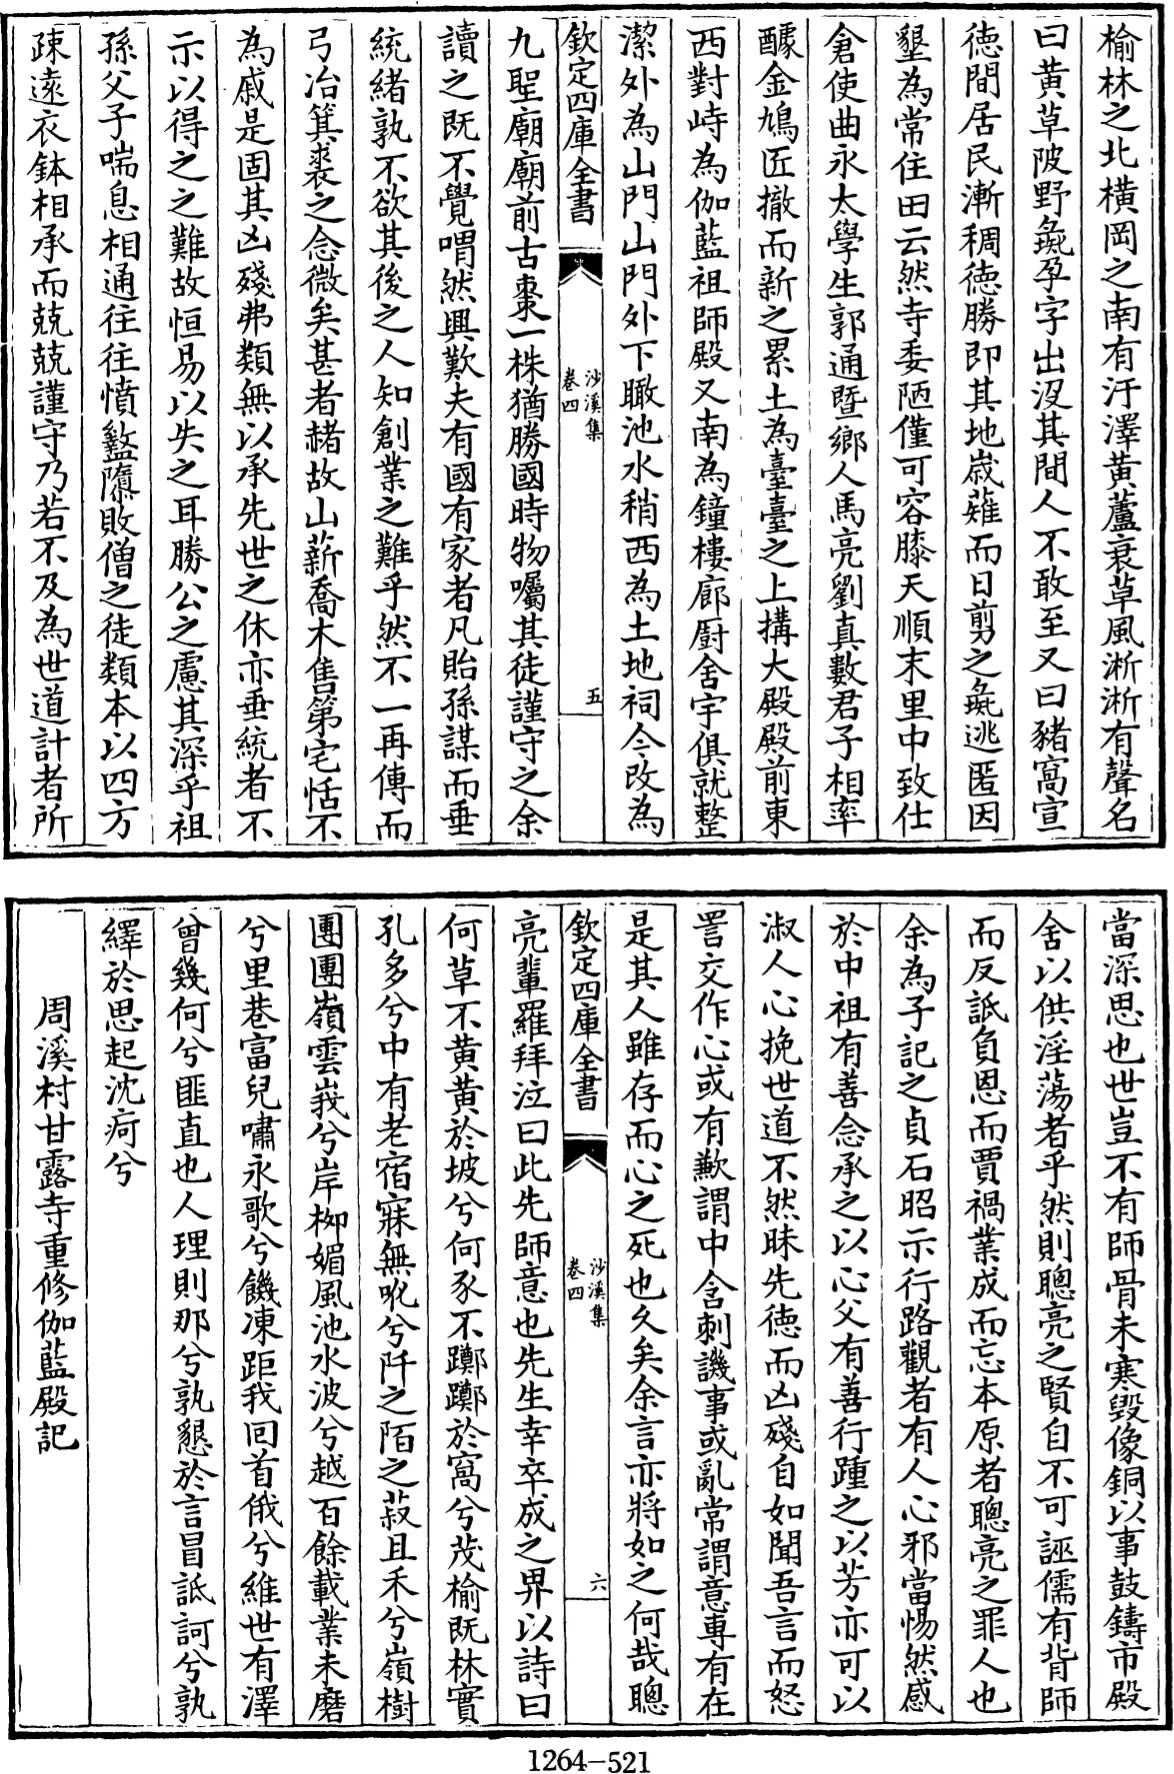 榆林之北橫岡之南有汙澤黃蘆衰草風淅淅有聲名
曰黃草陂野彘孕字出沒其間人不敢至又曰豬窩宣
徳間居民漸稠徳勝即其地歳薙而日剪之彘逃匿因
墾為常住田云然寺委陋僅可容膝天順末里中致仕
倉使曲永太學生郭通暨鄉人馬亮劉真數君子相率
醵金鳩匠撤而新之累土為臺臺之上搆大殿殿前東
西對峙為伽藍祖師殿又南為鐘樓廊厨舍宇俱就整
潔外為山門山門外下瞰池水稍西為土地祠今改為
欽定四庫全書
沙溪集
卷四
五
九聖廟廟前古棗一株猶勝國時物囑其徒謹守之余
讀之既不覺喟然興歎夫有國有家者凡貽孫謀而垂
統緒孰不欲其後之人知創業之難乎然不一再傳而
弓冶箕裘之念微矣甚者赭故山薪喬木售第宅恬不
為戚是固其凶殘弗類無以承先世之休亦垂統者不
示以得之之難故恒易以失之耳勝公之慮其深乎祖
孫父子喘息相通往往憤盭隳敗僧之徒類本以四方
疎遠衣鉢相承而兢兢謹守乃若不及為世道計者所
當深思也世豈不有師骨未寒毀像銅以事鼓鑄市殿
舍以供淫蕩者乎然則聰亮之賢自不可誣儒有背師
而反詆負恩而賈禍業成而忘本原者聰亮之罪人也
余為子記之貞石昭示行路觀者有人心邪當惕然感
於中祖有善念承之以心父有善行踵之以芳亦可以
淑人心挽世道不然昧先徳而凶殘自如聞吾言而怒
詈交作心或有歉謂中含刺譏事或亂常謂意専有在
是其人雖存而心之死也久矣余言亦將如之何哉聰
欽定四庫全書
沙溪集
卷四
六
亮輩羅拜泣曰此先師意也先生幸卒成之畀以詩曰
何草不黃黃於坡兮何豕不躑躑於窩兮茂榆既林實
孔多兮中有老宿寐無吪兮阡之陌之菽且禾兮嶺樹
團團嶺雲峩兮岸栁媚風池水波兮越百餘載業未磨
兮里巷富兒嘯永歌兮饑凍距我回首俄兮維世有澤
曾幾何兮匪直也人理則那兮孰懇於言冒詆訶兮孰
繹於思起沈疴兮
周溪村甘露寺重修伽藍殿記
1264-521